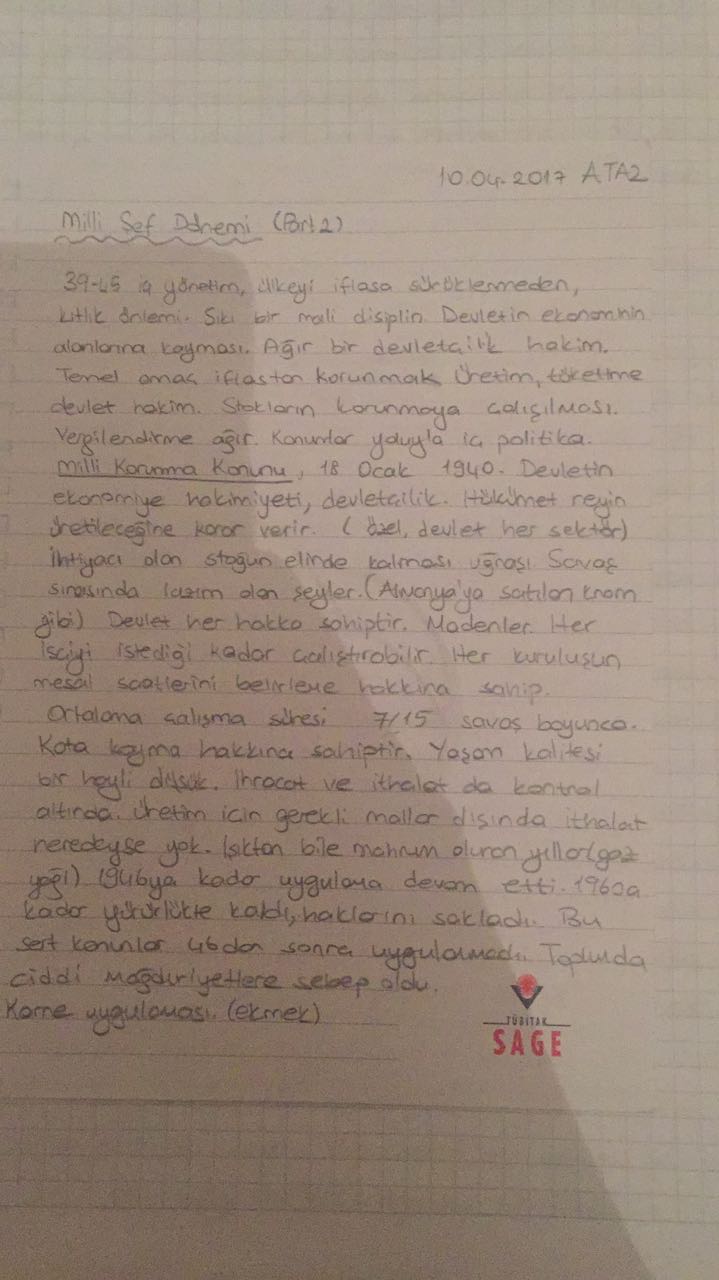 10.04.2017 ATA2
Milli Şef Dönemi (Part 2)
39-45 iç yönetim, ülkeyi iflasa sürüklemeden,
kıtlık önlemi. Sıkı bir mali disiplin. Devletin ekonominin
alanlarına kayması. Ağır bir devletçilik hakim.
Temel amaç iflastan korunmak. Üretim, tüketime
devlet hakim. Stokların korunmaya çalışılması.
Vergilendirme ağır. Kanunlar yoluyla iç politika.
Milli Korunma Kanunu, 18 Ocak 1940. Devletin
ekonomiye hakimiyeti, devletçilik. Hükümet neyin
üretileceğine karar verir. (özel, devlet her sektör)
İhtiyacı olan stoğun elinde kalması uğraşı. Savaş
sırasında lazım olan şeyler. (Almanya'ya satılan krom
gibi) Devlet her hakka sahiptir. Madenler. Her
işçiyi istediği kadar çalıştırabilir. Her kuruluşun
mesai saatlerini belirleme hakkına sahip.
Ortalama çalışma süresi 7/15 savaş boyunca.
Kota koyma hakkına sahiptir. Yaşam kalitesi
bir hayli düşük. İhracat ve ithalat da kontrol
altında. Üretim için gerekli mallar dışında ithalat
neredeyse yok. Işıktan bile mahrum olunan yıllar (gaz
yağı) 1946ya kadar uygulama devam etti. 1960a
kadar yürürlükte kaldı, haklarını sakladı. Bu
sert kanunlar 46dan sonra uygulanmadı. Toplumda
ciddi mağduriyetlere sebep oldu.
Karne uygulaması. (ekmek)
TÜBİTAK
SAGE